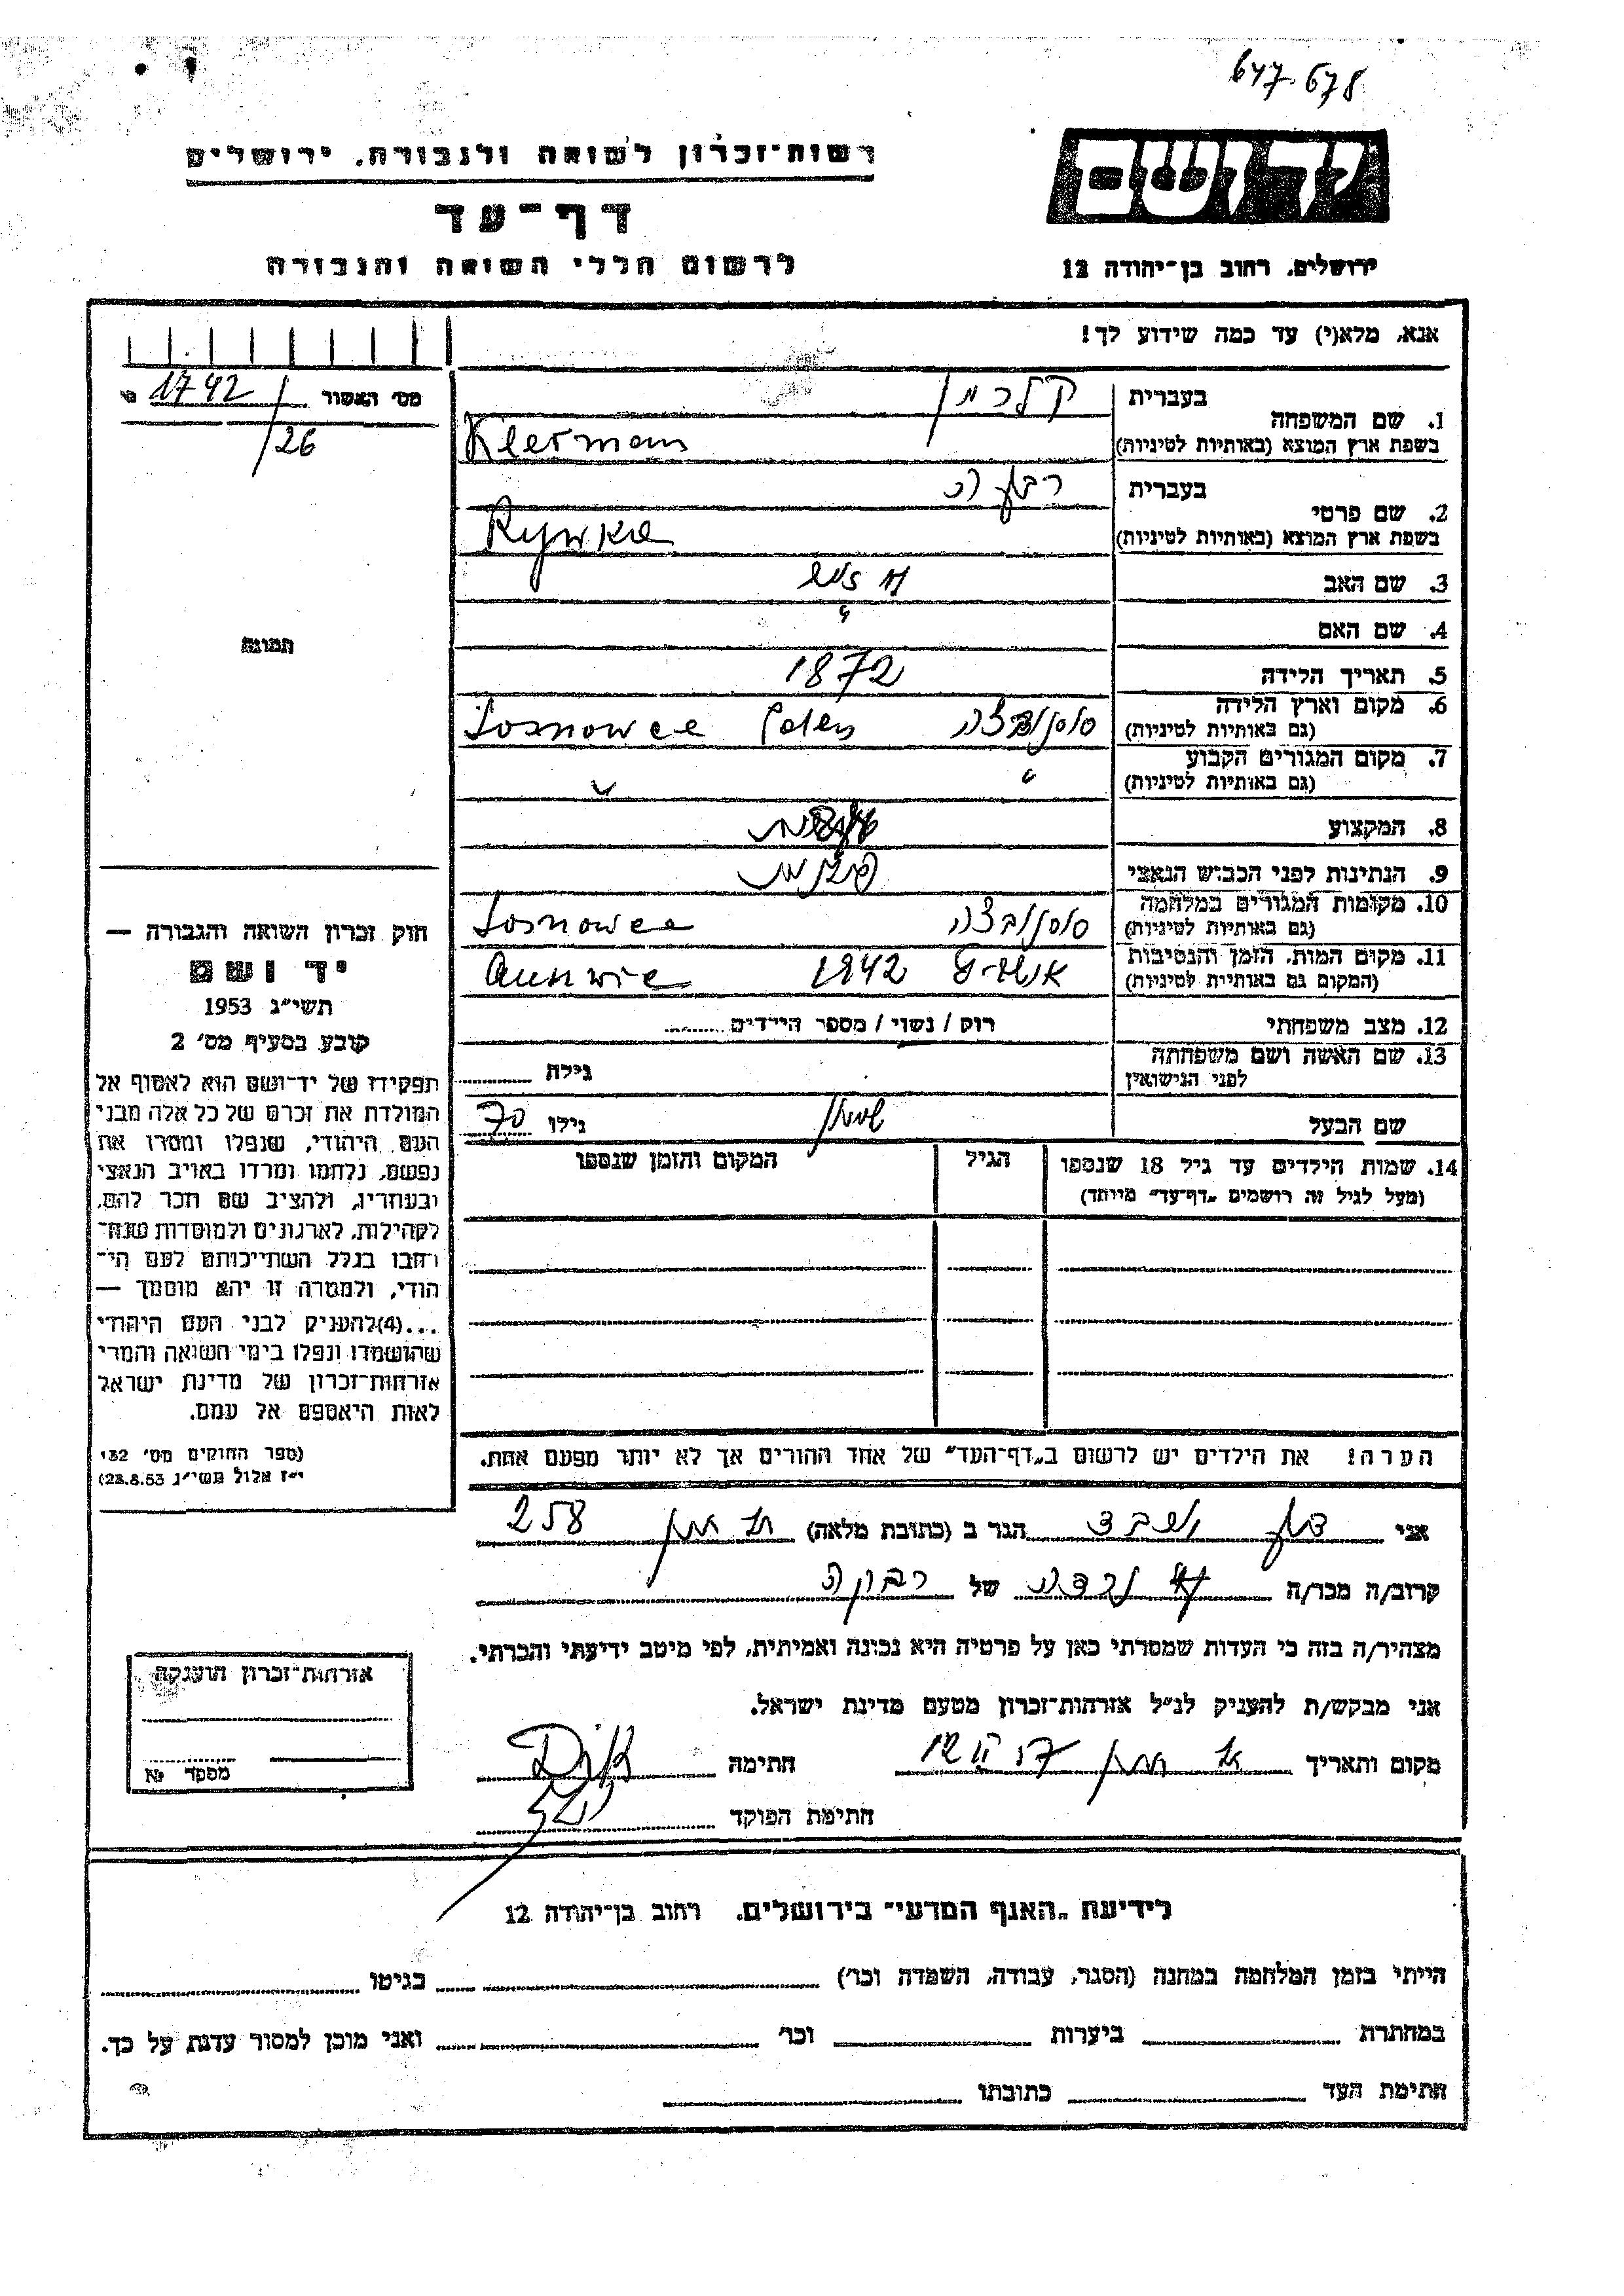 647.678
רשות־זכרון לשואה ולגבורה, ירושלים
יד ושם
דף־עד
לרשום חללי השואה והגבורה
ירושלים, רחוב בן־יהודה 12
אנא, מלא(י) עד כמה שידוע לך!
מס' האשור 1742
/26
1. שם המשפחה בעברית קלרמן
בשפת ארץ המוצא (באותיות לטיניות) Klerman
2. שם פרטי בעברית רבקה
בשפת ארץ המוצא (באותיות לטיניות) Rywka
3. שם האב
4. שם האם
תמונה
5. תאריך הלידה 1872
6. מקום וארץ הלידה (גם באותיות לטיניות) סוסנוביצה Polen Sosnowce
7. מקום המגורים הקבוע (גם באותיות לטיניות) " "
8. המקצוע
9. הנתינות לפני הכבוש הנאצי
10. מקומות המגורים במלחמה (גם באותיות לטיניות) סוסנוביצה Sosnowce
11. מקום המות, הזמן והנסיבות (המקום גם באותיות לטיניות) 1942 Auswic
12. מצב משפחתי רווק / נשוי / מספר הילדים
13. שם האשה ושם משפחתה לפני הנישואין גילה
שם הבעל גילו 70
14. שמות הילדים עד גיל 18 שנספו הגיל המקום והזמן שנספו
(מעל לגיל זה רושמים „דף־עד" מיוחד)
הערה! את הילדים יש לרשום ב„דף־העד" של אחד ההורים אך לא יותר מפעם אחת.
חוק זכרון השואה והגבורה —
יד ושם
תשי"ג 1953
קובע בסעיף מס' 2
תפקידו של יד־ושם הוא לאסוף אל
המולדת את זכרם של כל אלה מבני
העם היהודי, שנפלו ומסרו את
נפשם, נלחמו ומרדו באויב הנאצי
ובעוזריו, ולהציב שם וזכר להם,
לקהילות, לארגונים ולמוסדות שנח־
רבו בגלל השתייכותם לעם הי־
הודי, ולמטרה זו יהא מוסמך —
...(4) להעניק לבני העם היהודי
שהושמדו ונפלו בימי השואה והמרי
אזרחות־זכרון של מדינת ישראל
לאות היאספם אל עמם.
(ספר החוקים מס' 132
י"ז אלול תשי"ג 28.8.53)
אני הגר ב (כתובת מלאה) 258
קרוב/ה מכר/ה של רבקה
מצהיר/ה בזה כי העדות שמסרתי כאן על פרטיה היא נכונה ואמיתית, לפי מיטב ידיעתי והכרתי.
אני מבקש/ת להעניק לנ"ל אזרחות־זכרון מטעם מדינת ישראל.
מקום ותאריך חתימה
חתימת הפוקד
אזרחות־זכרון הוענקה
מספר №
לידיעת „האגף המדעי" בירושלים, רחוב בן־יהודה 12
הייתי בזמן המלחמה במחנה (הסגר, עבודה, השמדה וכו') בגיטו
במחתרת ביערות וכו' ואני מוכן למסור עדות על כך.
חתימת העד כתובתו